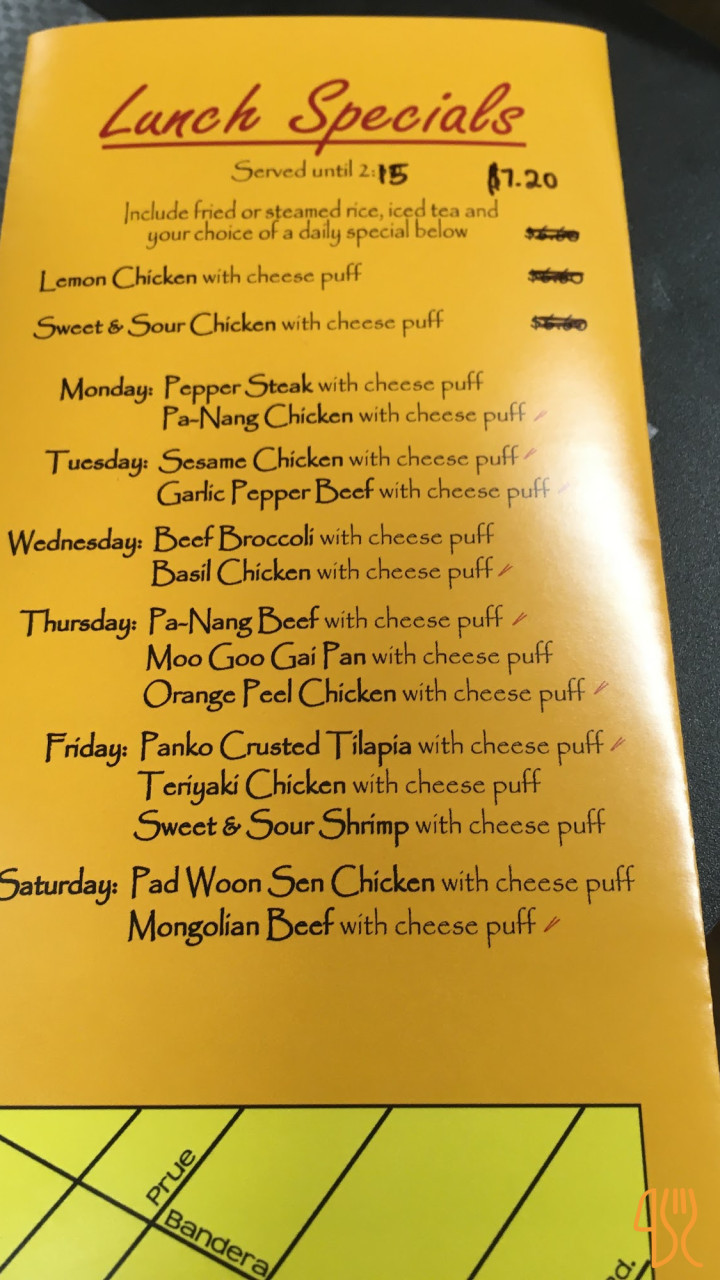 Lunch Specials
Served until 2:15 $7.20
Include fried or steamed rice, iced tea and
your choice of a daily special below $6.60
Lemon Chicken with cheese puff $6.60
Sweet & Sour Chicken with cheese puff $6.60
Monday: Pepper Steak with cheese puff
Pa-Nang Chicken with cheese puff
Tuesday: Sesame Chicken with cheese puff
Garlic Pepper Beef with cheese puff
Wednesday: Beef Broccoli with cheese puff
Basil Chicken with cheese puff
Thursday: Pa-Nang Beef with cheese puff
Moo Goo Gai Pan with cheese puff
Orange Peel Chicken with cheese puff
Friday: Panko Crusted Tilapia with cheese puff
Teriyaki Chicken with cheese puff
Sweet & Sour Shrimp with cheese puff
Saturday: Pad Woon Sen Chicken with cheese puff
Mongolian Beef with cheese puff
Prue
Bandera